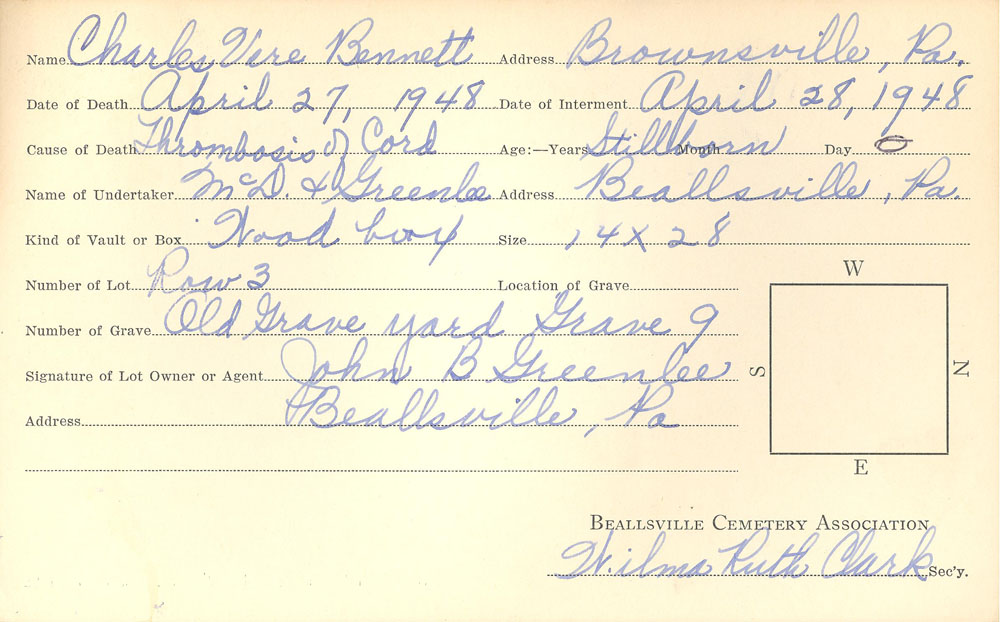 Name Charles Vere Bennett Address Brownsville, Pa.
Date of Death April 27, 1948 Date of Interment April 28, 1948
Cause of Death Thrombosis of Cord Age:—Years Stillborn Month Day 0
Name of Undertaker McD. & Greenlee Address Beallsville, Pa.
Kind of Vault or Box Wood box Size 14 x 28
Number of Lot Row 3 Location of Grave
Number of Grave Old Grave yard Grave 9
Signature of Lot Owner or Agent John B Greenlee
Address Beallsville, Pa
W
S N
E
BEALLSVILLE CEMETERY ASSOCIATION
Wilma Ruth Clark Sec'y.